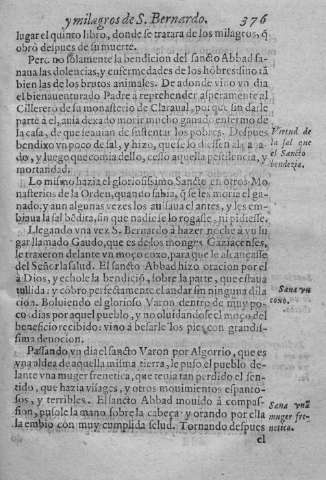 y milagros de S. Bernardo. 376
lugar el quinto libro, donde se tratara de los milagros, q̃
obrò despues de su muerte.
Pero no solamente la bendicion del sancto Abbad sa-
naua las dolencias, y enfermedades de los hõbres sino tã
bien las de los brutos animales. De adonde vino vn dia
el bienauenturado Padre à reprehender asperamente al
Cillerero de su monasterio de Claraual, porque sin darle
parte à el, auia dexado morir mucho ganado enfermo de
la casa, de que se auian de sustentar los pobres. Despues
bendixo vn poco de sal, y hizo, que se lo diessen al
do, y luego que comia dello, cesso aquella pestilencia, y
mortandad.
Virtud de
la sal que
el Sancto
bendezia.
Lo mismo hazia el gloriosissimo Sancto en otros Mo-
nasterios de la Orden, quando sabia, q̃ se les moria el ga-
nado, y aun algunas vezes los auisaua el antes, y les em-
biaua la sal bẽdita, sin que nadie se lo rogasse, ni pidiesse.
Llegando vna vez S. Bernardo à hazer noche à vn lu-
gar llamado Gaudo, que es de los monges Gaziacenses,
le traxeron delante vn moço coxo, para que le alcançasse
del Señor la salud. El sancto Abbad hizo oracion por el
à Dios, y echole la bendiciõ, sobre la parte, que estaua
tullida: y cobro perfectamente el andar sin ninguna dila
cion. Boluiendo el glorioso Varon dentro de muy po-
cos dias por aquel pueblo, y no oluidandose el moço del
beneficio recibido: vino à besarle los pies con grandis-
sima deuocion.
Sana vn
coxo.
Passando vn dia el sancto Varon por Algorrio, que es
vna aldea de aquella misma tierra, le puso el pueblo de-
lante vna muger frenetica, que tenia tan perdido el sen-
tido, que hazia visages, y otros mouimientos espanto-
sos, y terribles. El sancto Abbad mouido à compas-
sion, pusole la mano sobre la cabeça: y orando por ella
la embio con muy cumplida salud. Tornando despues
Sana vna
muger fre-
netica.
el